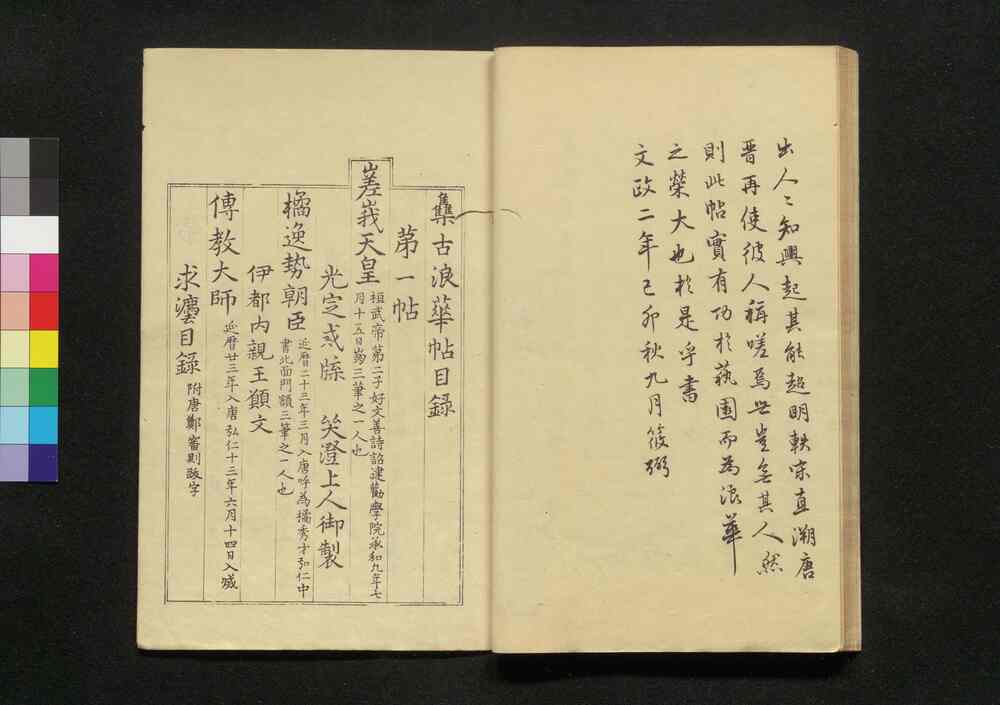 出人々知興起其能超明軼宋直溯唐
晋再使彼人稱嗟焉世豈無其人然
則此帖實有功於藝園而為浪華
之榮大也於是乎書
文政二年己卯秋九月筱弼
集古浪華帖目録
第一帖
嵯峩天皇
桓武帝第二子好文善詩詔建勸學院承和九年七
月十五日崩三筆之一人也
光定戒牒 哭澄上人御製
橘逸勢朝臣
延暦二十三年三月入唐呼為橘秀才弘仁中
書北面門額三筆之一人也
伊都内親王願文
傳教大師
延暦廿三年入唐弘仁十三年六月十四日入滅
求法目録
附唐鄭審則跋字